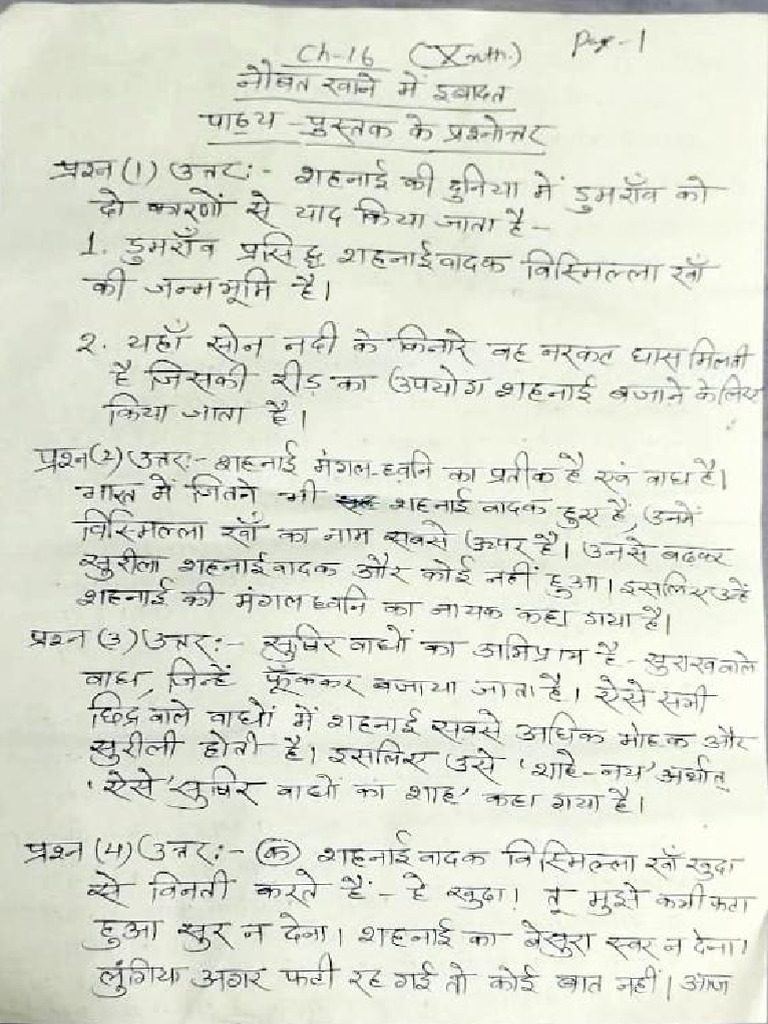 Page-1
Ch-16 (Xth.)
नौबत खाने में इबादत
पाठ्य-पुस्तक के प्रश्नोत्तर
प्रश्न (1) उत्तर:- शहनाई की दुनिया में डुमराँव को
दो कारणों से याद किया जाता है-
1. डुमराँव प्रसिद्ध शहनाईवादक बिस्मिल्ला खाँ
की जन्मभूमि है।
2. यहाँ सोन नदी के किनारे वह नरकट घास मिलती
है जिसकी रीड़ का उपयोग शहनाई बजाने के लिए
किया जाता है।
प्रश्न(2) उत्तर:- शहनाई मंगल-ध्वनि का प्रतीक है एवं वाद्य है।
भारत में जितने भी शहनाई वादक हुए हैं, उनमें
बिस्मिल्ला खाँ का नाम सबसे ऊपर है। उनसे बढकर
सुरीला शहनाईवादक और कोई नहीं हुआ। इसलिए उन्हें
शहनाई की मंगलध्वनि का नायक कहा गया है।
प्रश्न (3) उत्तर:- सुषिर वाद्यों का अभिप्राय है- सुराखवाले
वाद्य, जिन्हें फूँककर बजाया जाता है। ऐसे सभी
छिद्र वाले वाद्यों में शहनाई सबसे अधिक मोहक और
सुरीली होती है। इसलिए उसे 'शाहे-नय' अर्थात्
'ऐसे सुषिर वाद्यों का शाह' कहा गया है।
प्रश्न (4) उत्तर:- (क) शहनाईवादक बिस्मिल्ला खाँ खुदा
से विनती करते हैं- हे खुदा! तू मुझे कभी फटा
हुआ सुर न देना। शहनाई का बेसुरा स्वर न देना।
लुंगिया अगर फटी रह गई तो कोई बात नहीं। आज